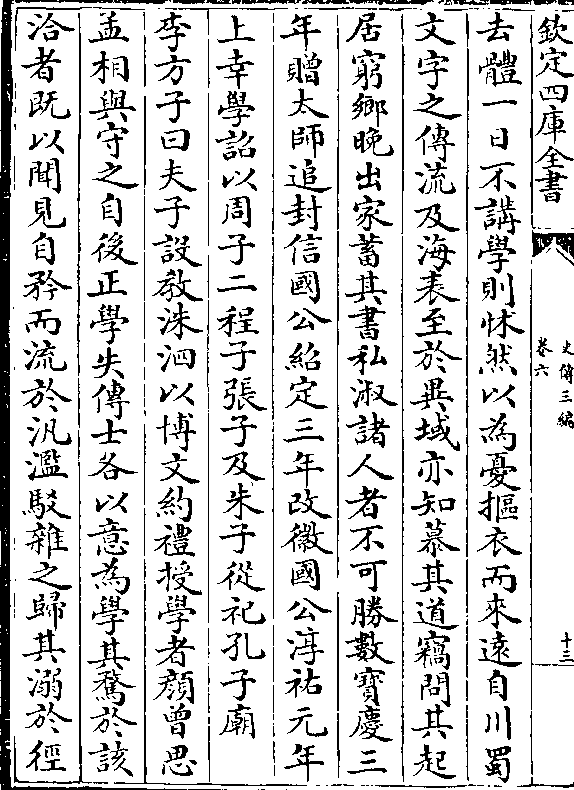 欽定四庫全書
史傳三編
卷六
十三
去體一日不講學則怵然以為憂摳衣而來遠自川蜀
文字之傳流及海表至於異域亦知慕其道竊問其起
居窮鄉晚出家蓄其書私淑諸人者不可勝數寶慶三
年贈太師追封信國公紹定三年改徽國公淳祐元年
上幸學詔以周子二程子張子及朱子從祀孔子廟
李方子曰夫子設教洙泗以博文約禮授學者顏曾思
孟相與守之自後正學失傳士各以意為學其騖於該
洽者既以聞見自矜而流於汎濫駁雜之歸其溺於徑